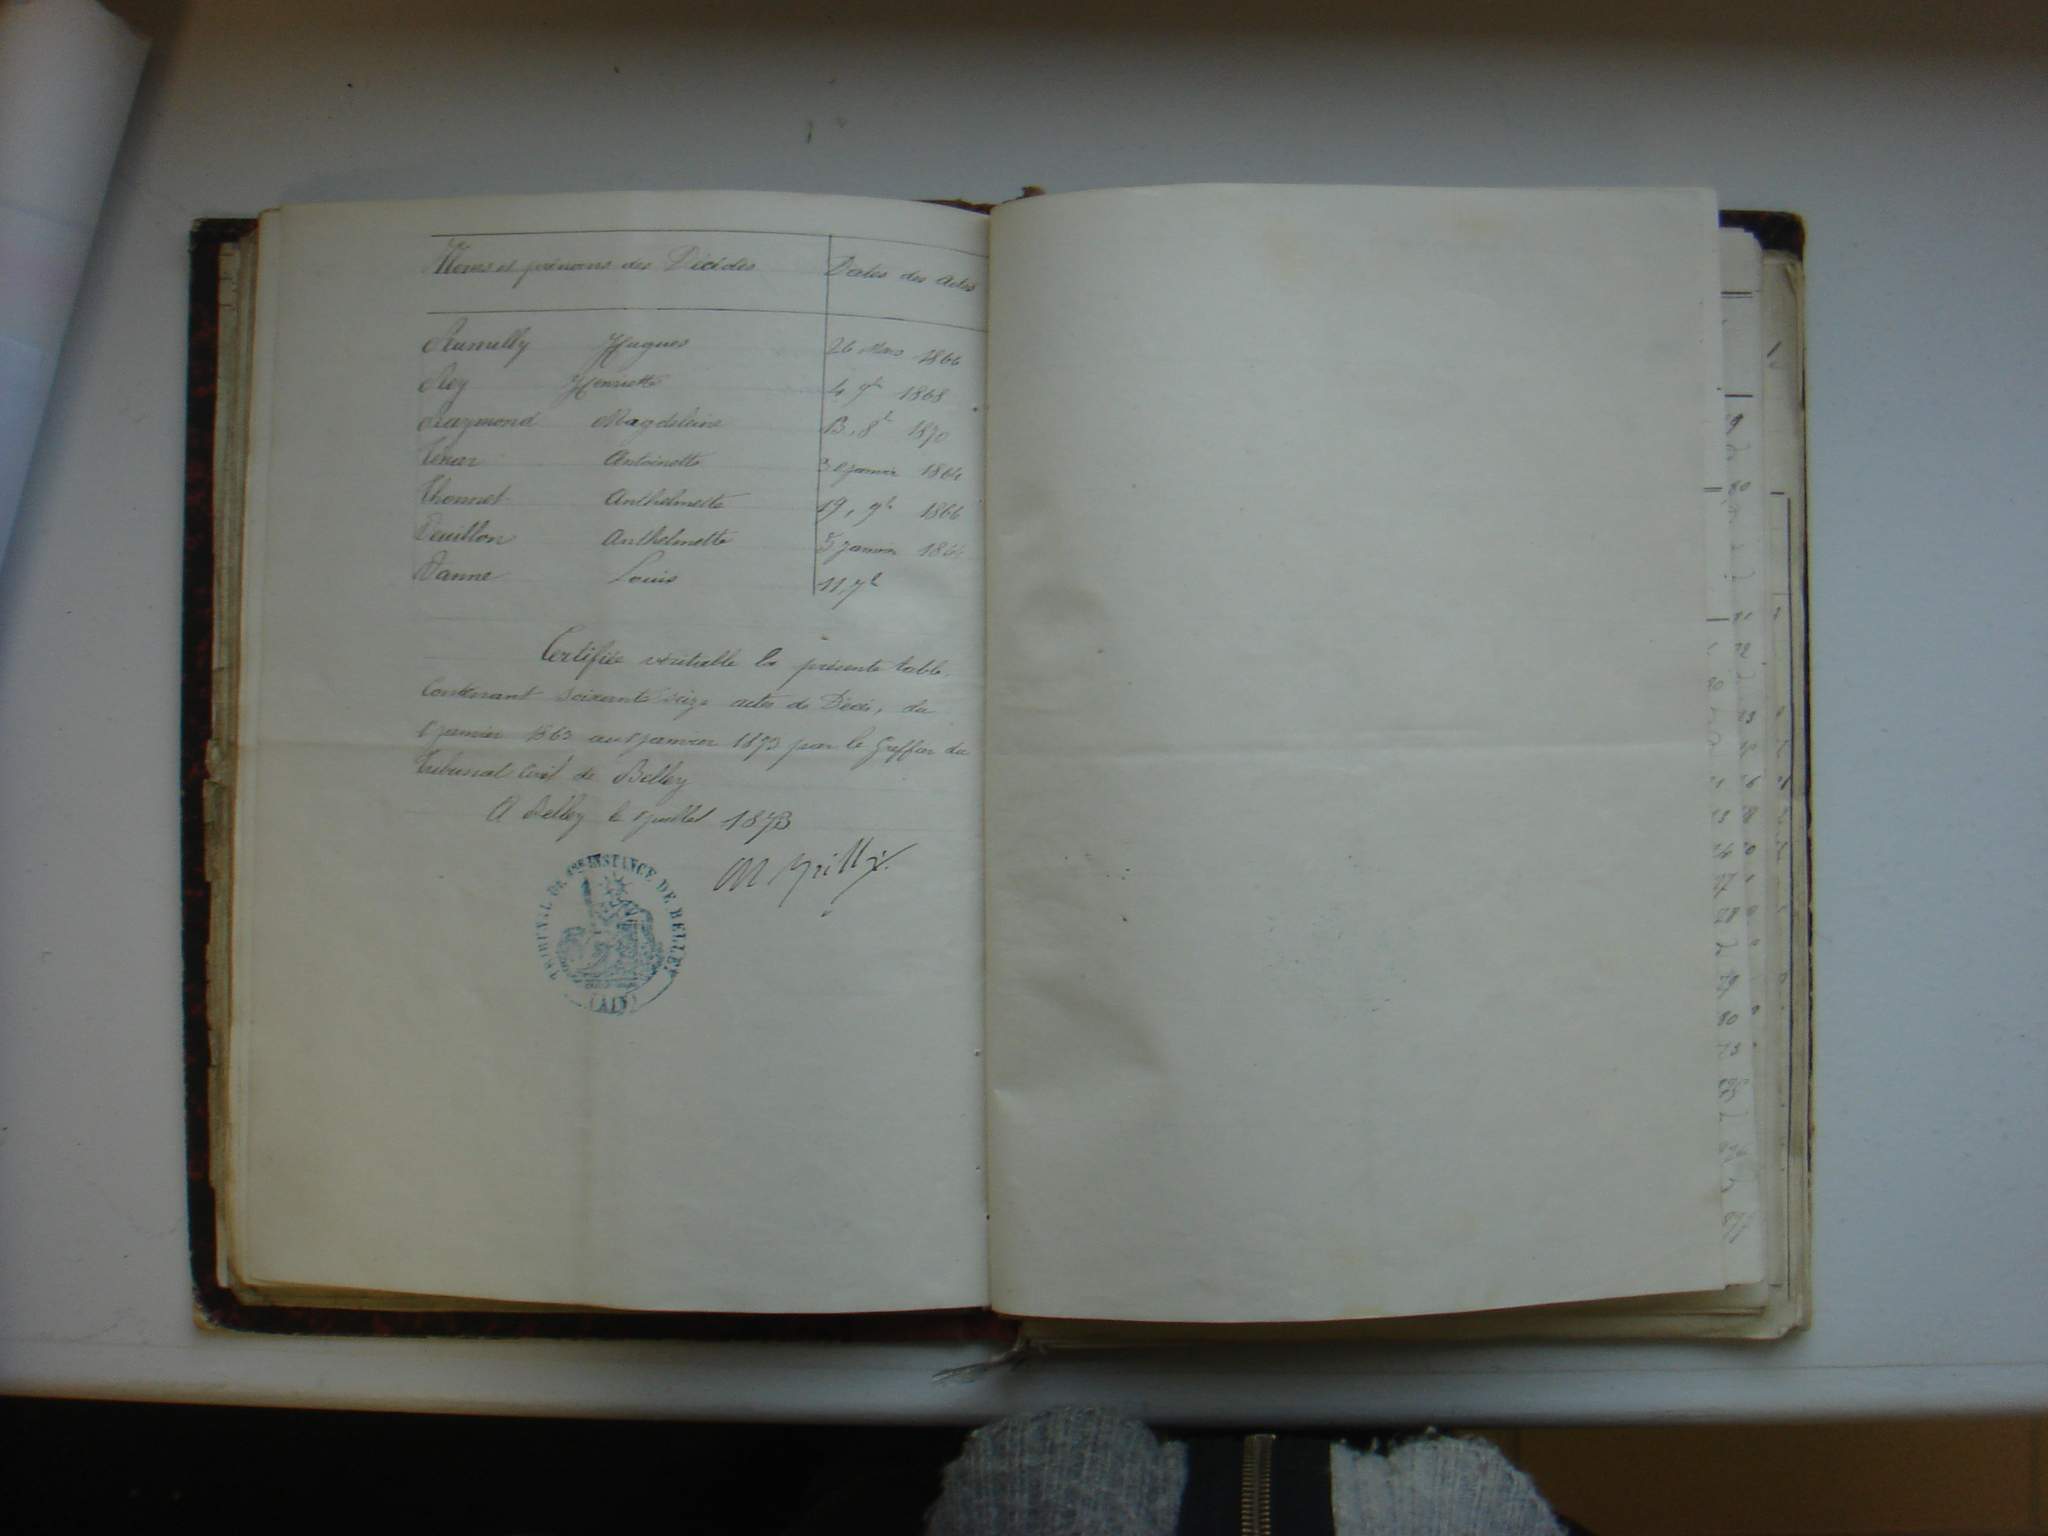 Noms et prénoms des Décédés Dates des actes
Rumilly Hugues 26 Mars 1866
Rey Henriette 4 9bre 1868
Raymond Magdeleine 13, 8b 1870
Antoinette 30 janvier 1864
Thonnet Anthelmette 19, 9b 1866
Anthelmette 5 janvier 1864
Louis 11, 7b
Certifiée véritable la présente table
Contenant soixante seize actes de Décès, du
1 janvier 1863 au 1 janvier 1873 par le Greffier du
Tribunal Civil de Belley
A Belley le 1 juillet 1873
TRIBUNAL DE 1ere INSTANCE DE BELLEY
(AIN)